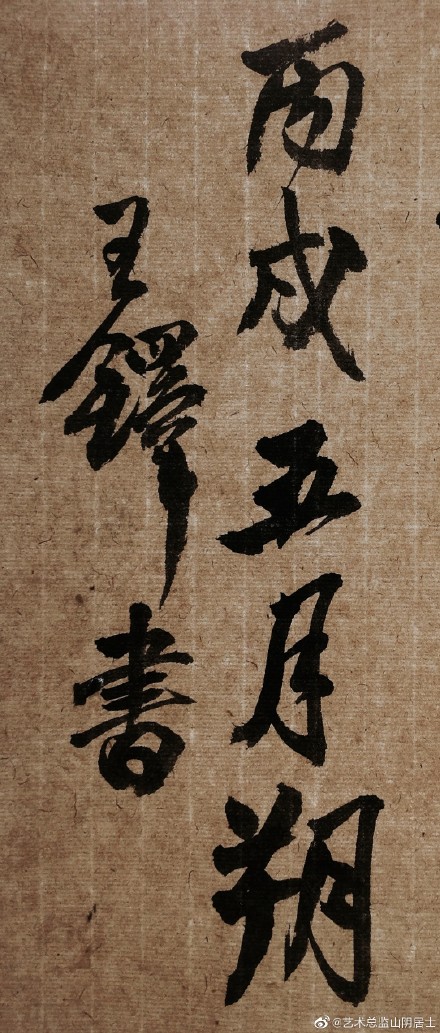 丙戌五月朔
王鐸書
@艺术总监山阴居士